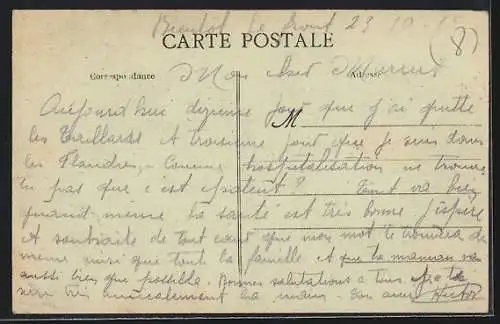 Bientôt le front 23
(8)
CARTE POSTALE
Correspondance Adresse
Mon cher
M
Aujourd'hui dixième jour que j'ai quitté
les et troisième jour que je suis dans
les Flandres, - Comme hospitalisation ne trouve
tu pas que c'est épatent? Tout va bien
quand même la santé est très bonne J'espère
et souhaite de tout cœur que mon mot te trouvera de
même ainsi que tout la famille et que ta maman va
aussi bien que possible. Bonnes salutations a tous je te
serre très amicalement la main. Ton ami